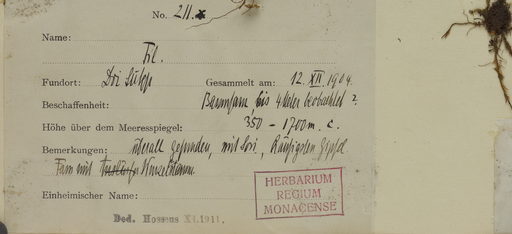 No. 211.
Name:
Fil.
Fundort: Doi Sutep Gesammelt am: 12. XII. 1904.
Beschaffenheit: Baumfarn, bis 4 Meter beobachtet ?
Höhe über dem Meeresspiegel: 350 – 1700 m. c.
Bemerkungen: überall gefunden, mit
Farn mit
Einheimischer Name:
HERBARIUM
REGIUM
MONACENSE
Ded. Hosseus XI.1911.